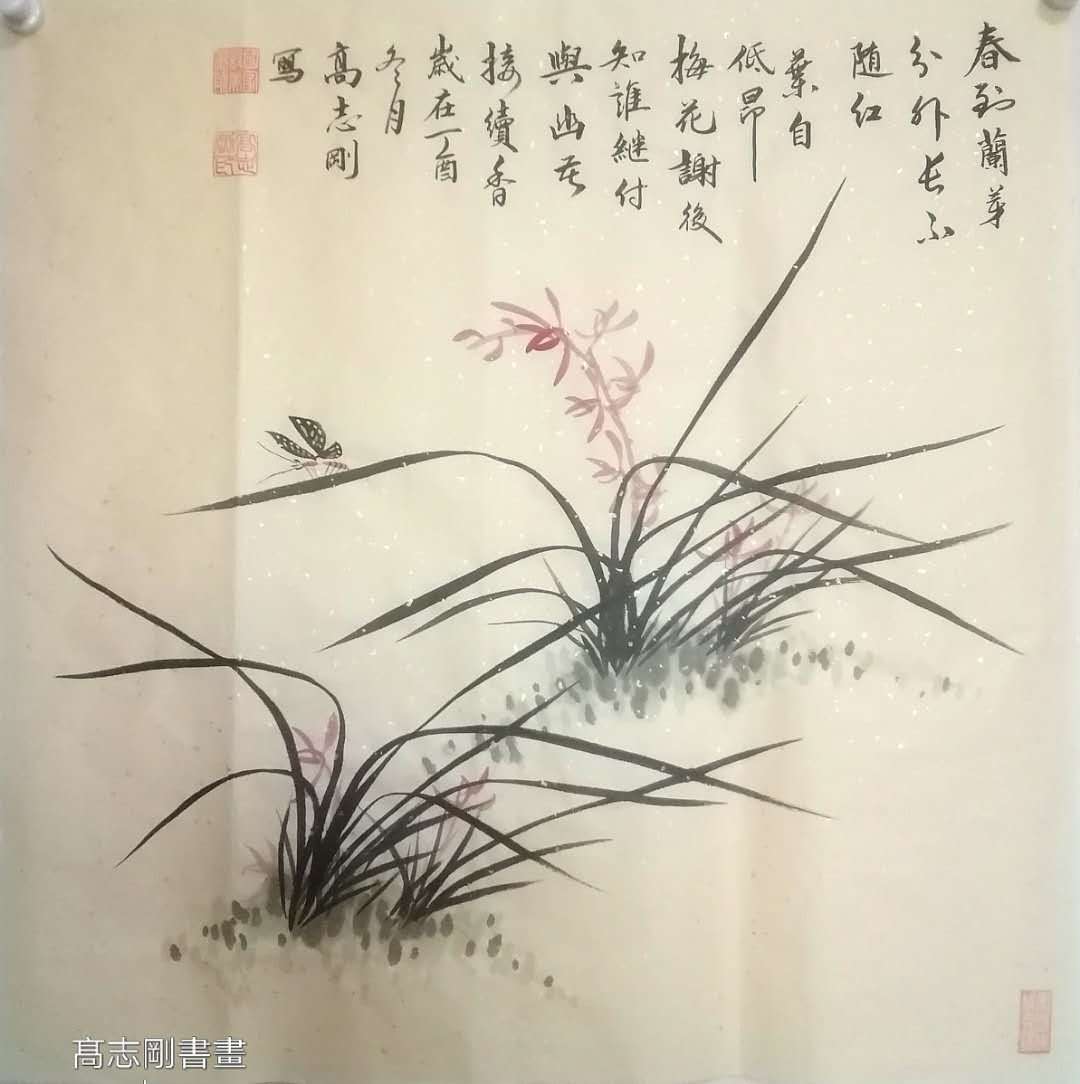 春到蘭芽
分外长不
随红
葉自
低昂
梅花謝後
知誰継付
與幽花
接續香
歲在丁酉
冬月
高志剛
寫
髙志剛書畫